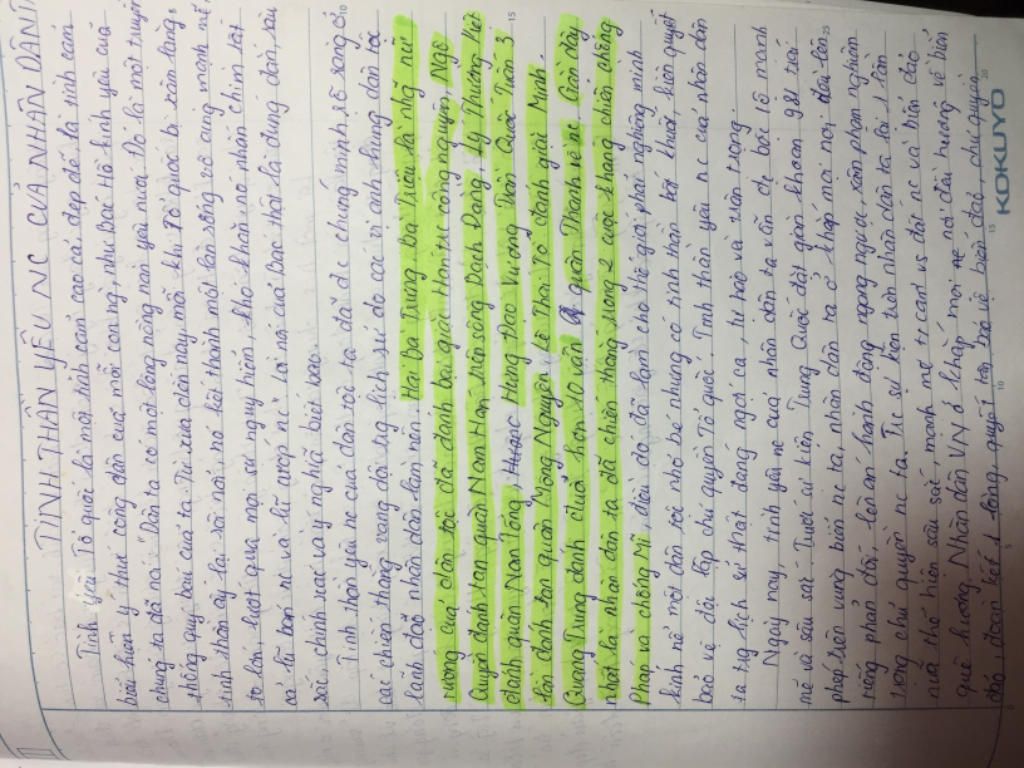 TINH THẦN YÊU NC CỦA NHÂN DÂN
Tình yêu Tổ quốc là một tình cảm cao cả, đẹp đẽ là tình cảm
biểu hiện ý thức công dân của mỗi con ng, như Bác Hồ kính yêu của
chúng ta đã nói "Dân ta có một lòng nồng nàn yêu nước. Đó là một truyền
thống quý báu của ta. Từ xưa đến nay, mỗi khi Tổ quốc bị xâm lăng,
tinh thần ấy lại sôi nổi, nó kết thành một làn sóng vô cùng mạnh mẽ,
to lớn, lướt qua mọi sự nguy hiểm, khó khăn, nó nhấn chìm tất
cả lũ bán nc và lũ cướp nc". Lời nói của Bác thật là đúng đắn, sâu
sắc, chính xác và ý nghĩa biết bao.
Tinh thần yêu nc của dân tộc ta đã đc chứng minh, rõ ràng ở
các chiến thắng vang dội trg lịch sử do các vị anh hùng dân tộc
lãnh đạo nhân dân làm nên. Hai Bà Trưng, Bà Triệu, là nhg nữ
tướng của dân tộc đã đánh bại giặc Hán trc công nguyên, Ngô
Quyền đánh tan quân Nam Hán trên sông Bạch Đằng, Lý Thường Kiệt
đánh quân Nam Tống, Hưng Đạo Vương Trần Quốc Tuấn 3
lần đánh tan quân Mông Nguyên, Lê Thái Tổ đánh giặc Minh.
Quang Trung đánh đuổi hơn 10 vạn quân Thanh về nc. Gần đây
nhất là nhân dân ta đã chiến thắng trong 2 cuộc kháng chiến chống
Pháp và chống Mĩ, điều đó đã làm cho thế giới phải nghiêng mình
kính nể một dân tộc nhỏ bé nhưng có tinh thần bất khuất, kiên quyết
bảo vệ độc lập chủ quyền Tổ quốc. Tinh thần yêu nc của nhân dân
ta trg lịch sử thật đáng ngợi ca, tự hào và trân trọng.
Ngày nay, tình yêu nc của nhân dân ta vẫn đc bộc lộ mạnh
mẽ và sâu sắc. Trước sự kiện Trung Quốc đặt giàn khoan 981 trái
phép trên vùng biển nc ta, nhân dân ta ở khắp mọi nơi, dấy lên
sóng phản đối, lên án hành động ngông nghênh, xâm phạm nghiêm
trọng chủ quyền nc ta. Từ sự kiện trên nhân dân ta lại 1 lần
nữa thể hiện sâu sắc, mạnh mẽ t/cảm vs đất nc và biển đảo
quê hương. Nhân dân VN ở khắp mọi nơi đều hướng về biển
đảo, đoàn kết 1 lòng, quyết tâm bảo vệ biển đảo, chủ quyền
KOKUYO
5
10
15
20
10
15
25